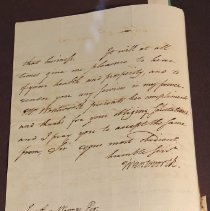 that business It will at all
times give me pleasure to hear
of your health and prosperity and to
render you any service in my power
Mrs Wentworth presents her compliments
and thanks for your obliging Salutations
and I pray you to accept the same
from Sir your most obedient
humble Servt
Wentworth